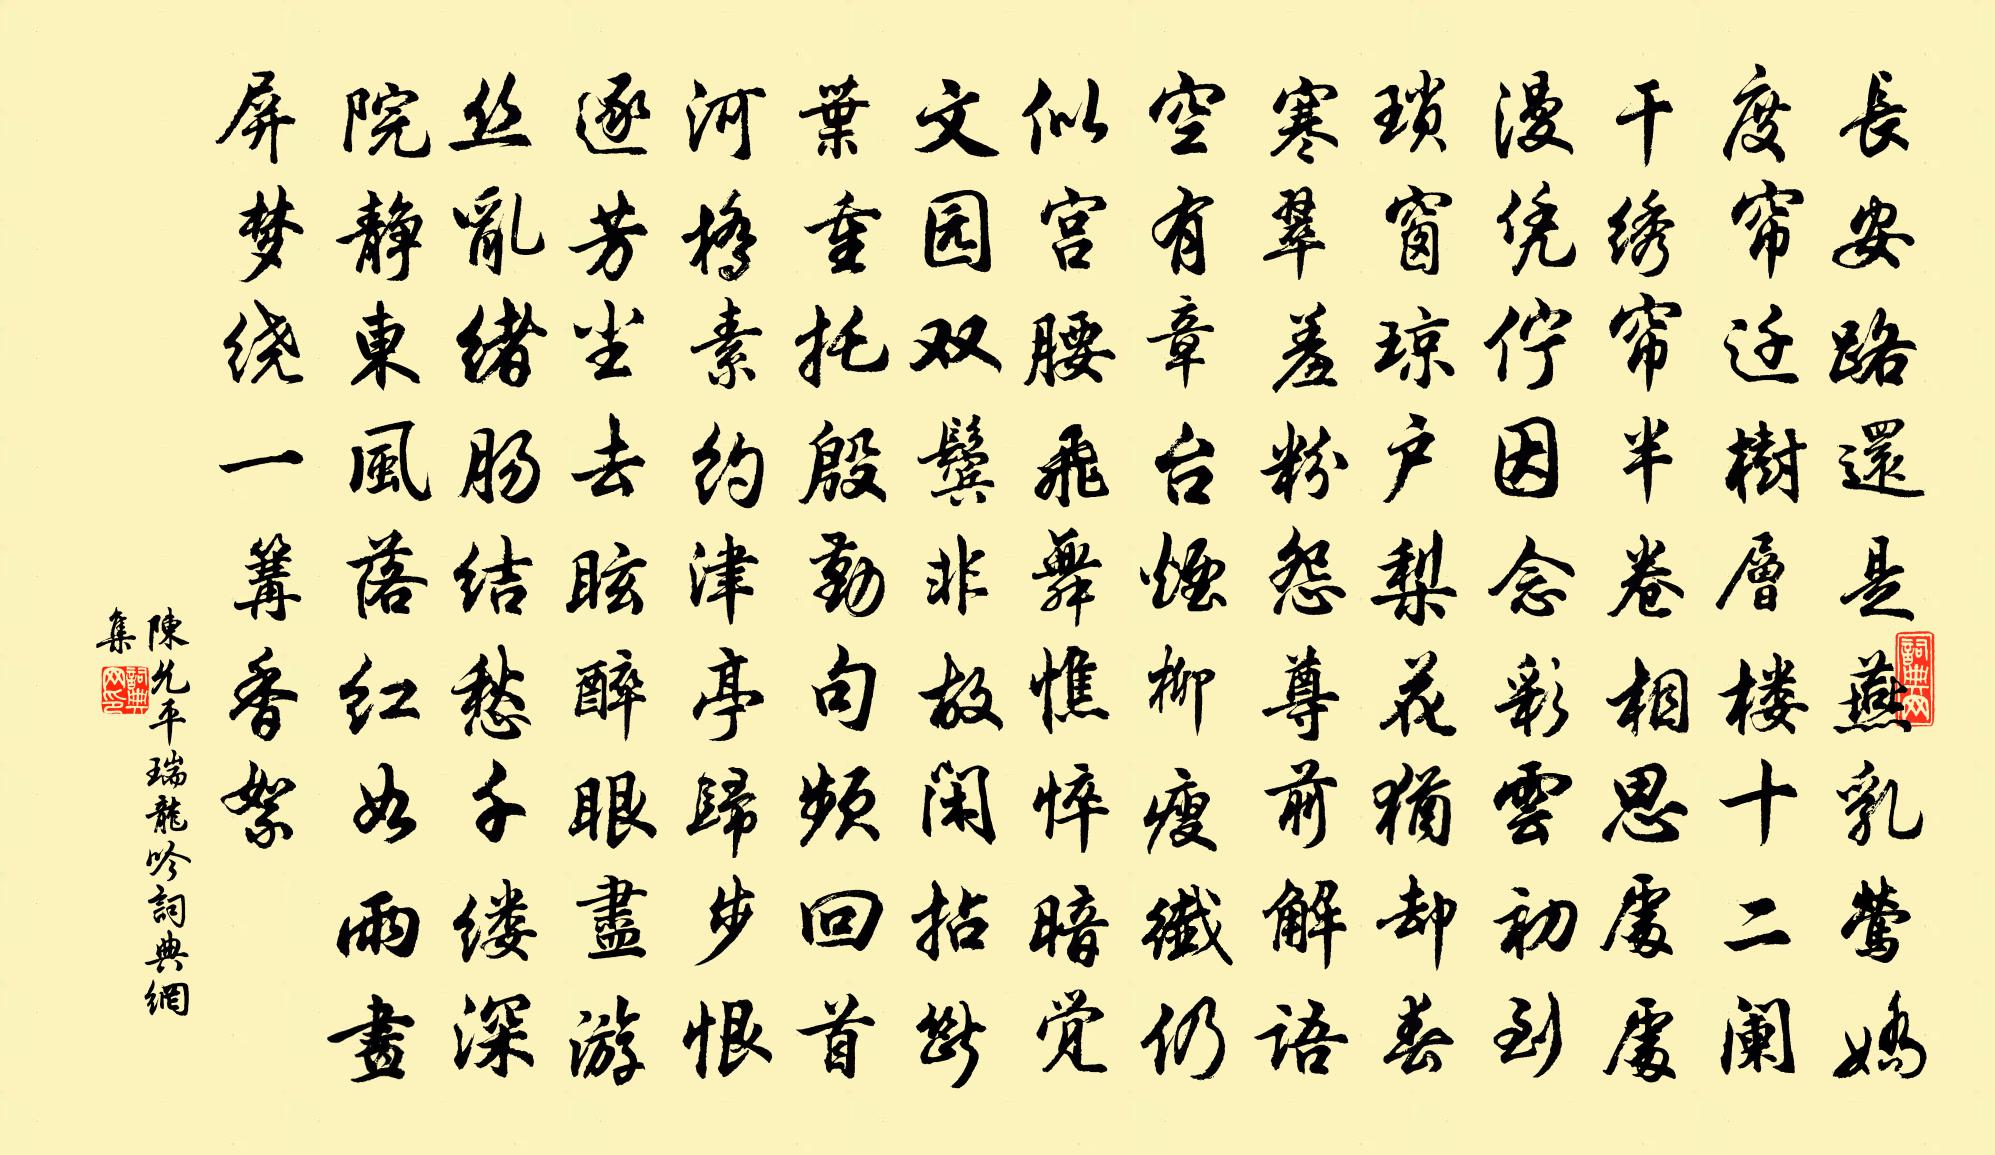 長安路還是燕乳鶯嬌
度帘迁樹層楼十二阑
干绣帘半卷相思處處
漫凭佇因念彩雲初到
琐窗琼户梨花猶却春
寒翠羞粉怨尊前解語
空有章台煙柳瘦纖仍
似宫腰飛舞憔悴暗觉
文园双鬓非故闲拈断
葉重托殷勤句频回首
河橋素约津亭歸步恨
逐芳尘去眩醉眼盡游
丝亂緒肠结愁千缕深
院静東風落红如雨畫
屏梦绕一篝香絮
陳允平瑞龍吟詞典網
集
詞典网
詞典网印